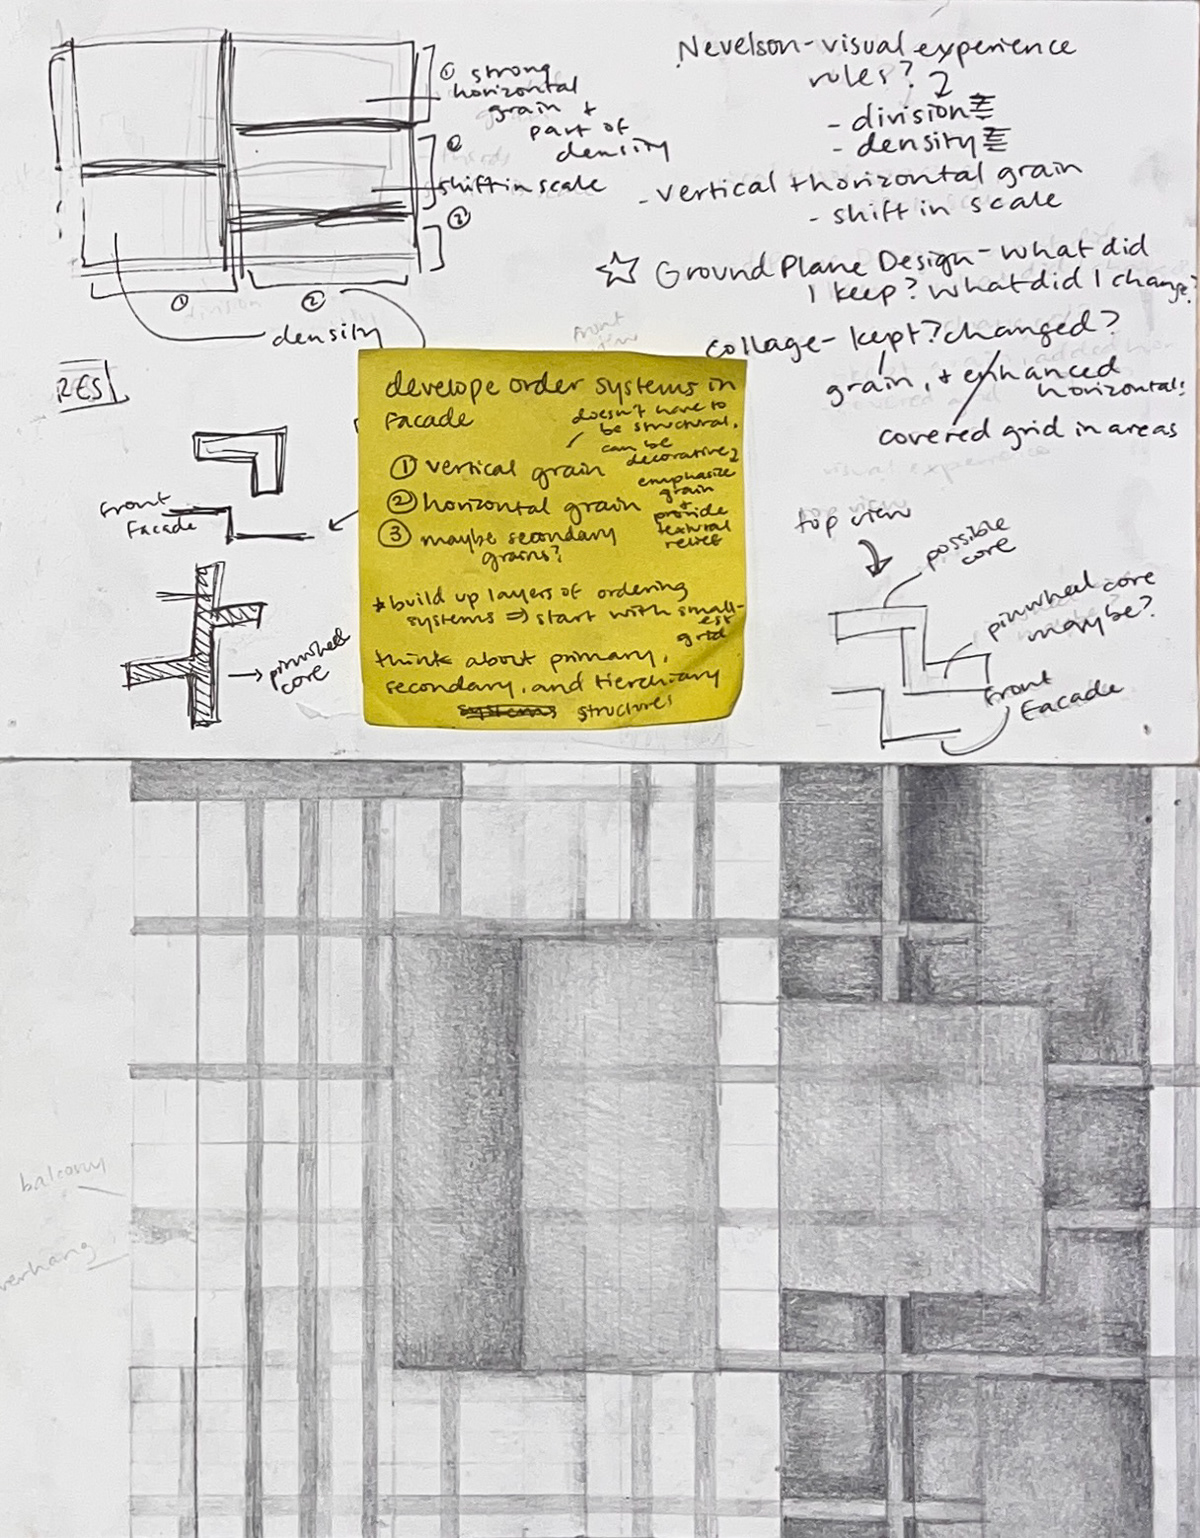 ① strong
horizontal
grain +
part of
density
②
shift in scale
②
① ②
density
Nevelson - visual experience
rules?
- division
- density
- vertical + horizontal grain
- shift in scale
☆ Ground Plane Design - what did
I keep? what did I change?
collage - kept? changed?
grain, + enhanced
horizontal!
covered grid in areas
RES
front
facade
pinwheel
core
develope order systems in
facade
doesn't have to
be structural,
can be
decorative
① vertical grain
emphasize
grain
+
provide
textural
relief
② horizontal grain
③ maybe secondary
grains?
* build up layers of ordering
systems ⇒ start with small-
est
grid
think about primary,
secondary, and tierchiary
systems structures
top view
possible
core
pinwheel core
maybe?
front
facade
balcony
verhang